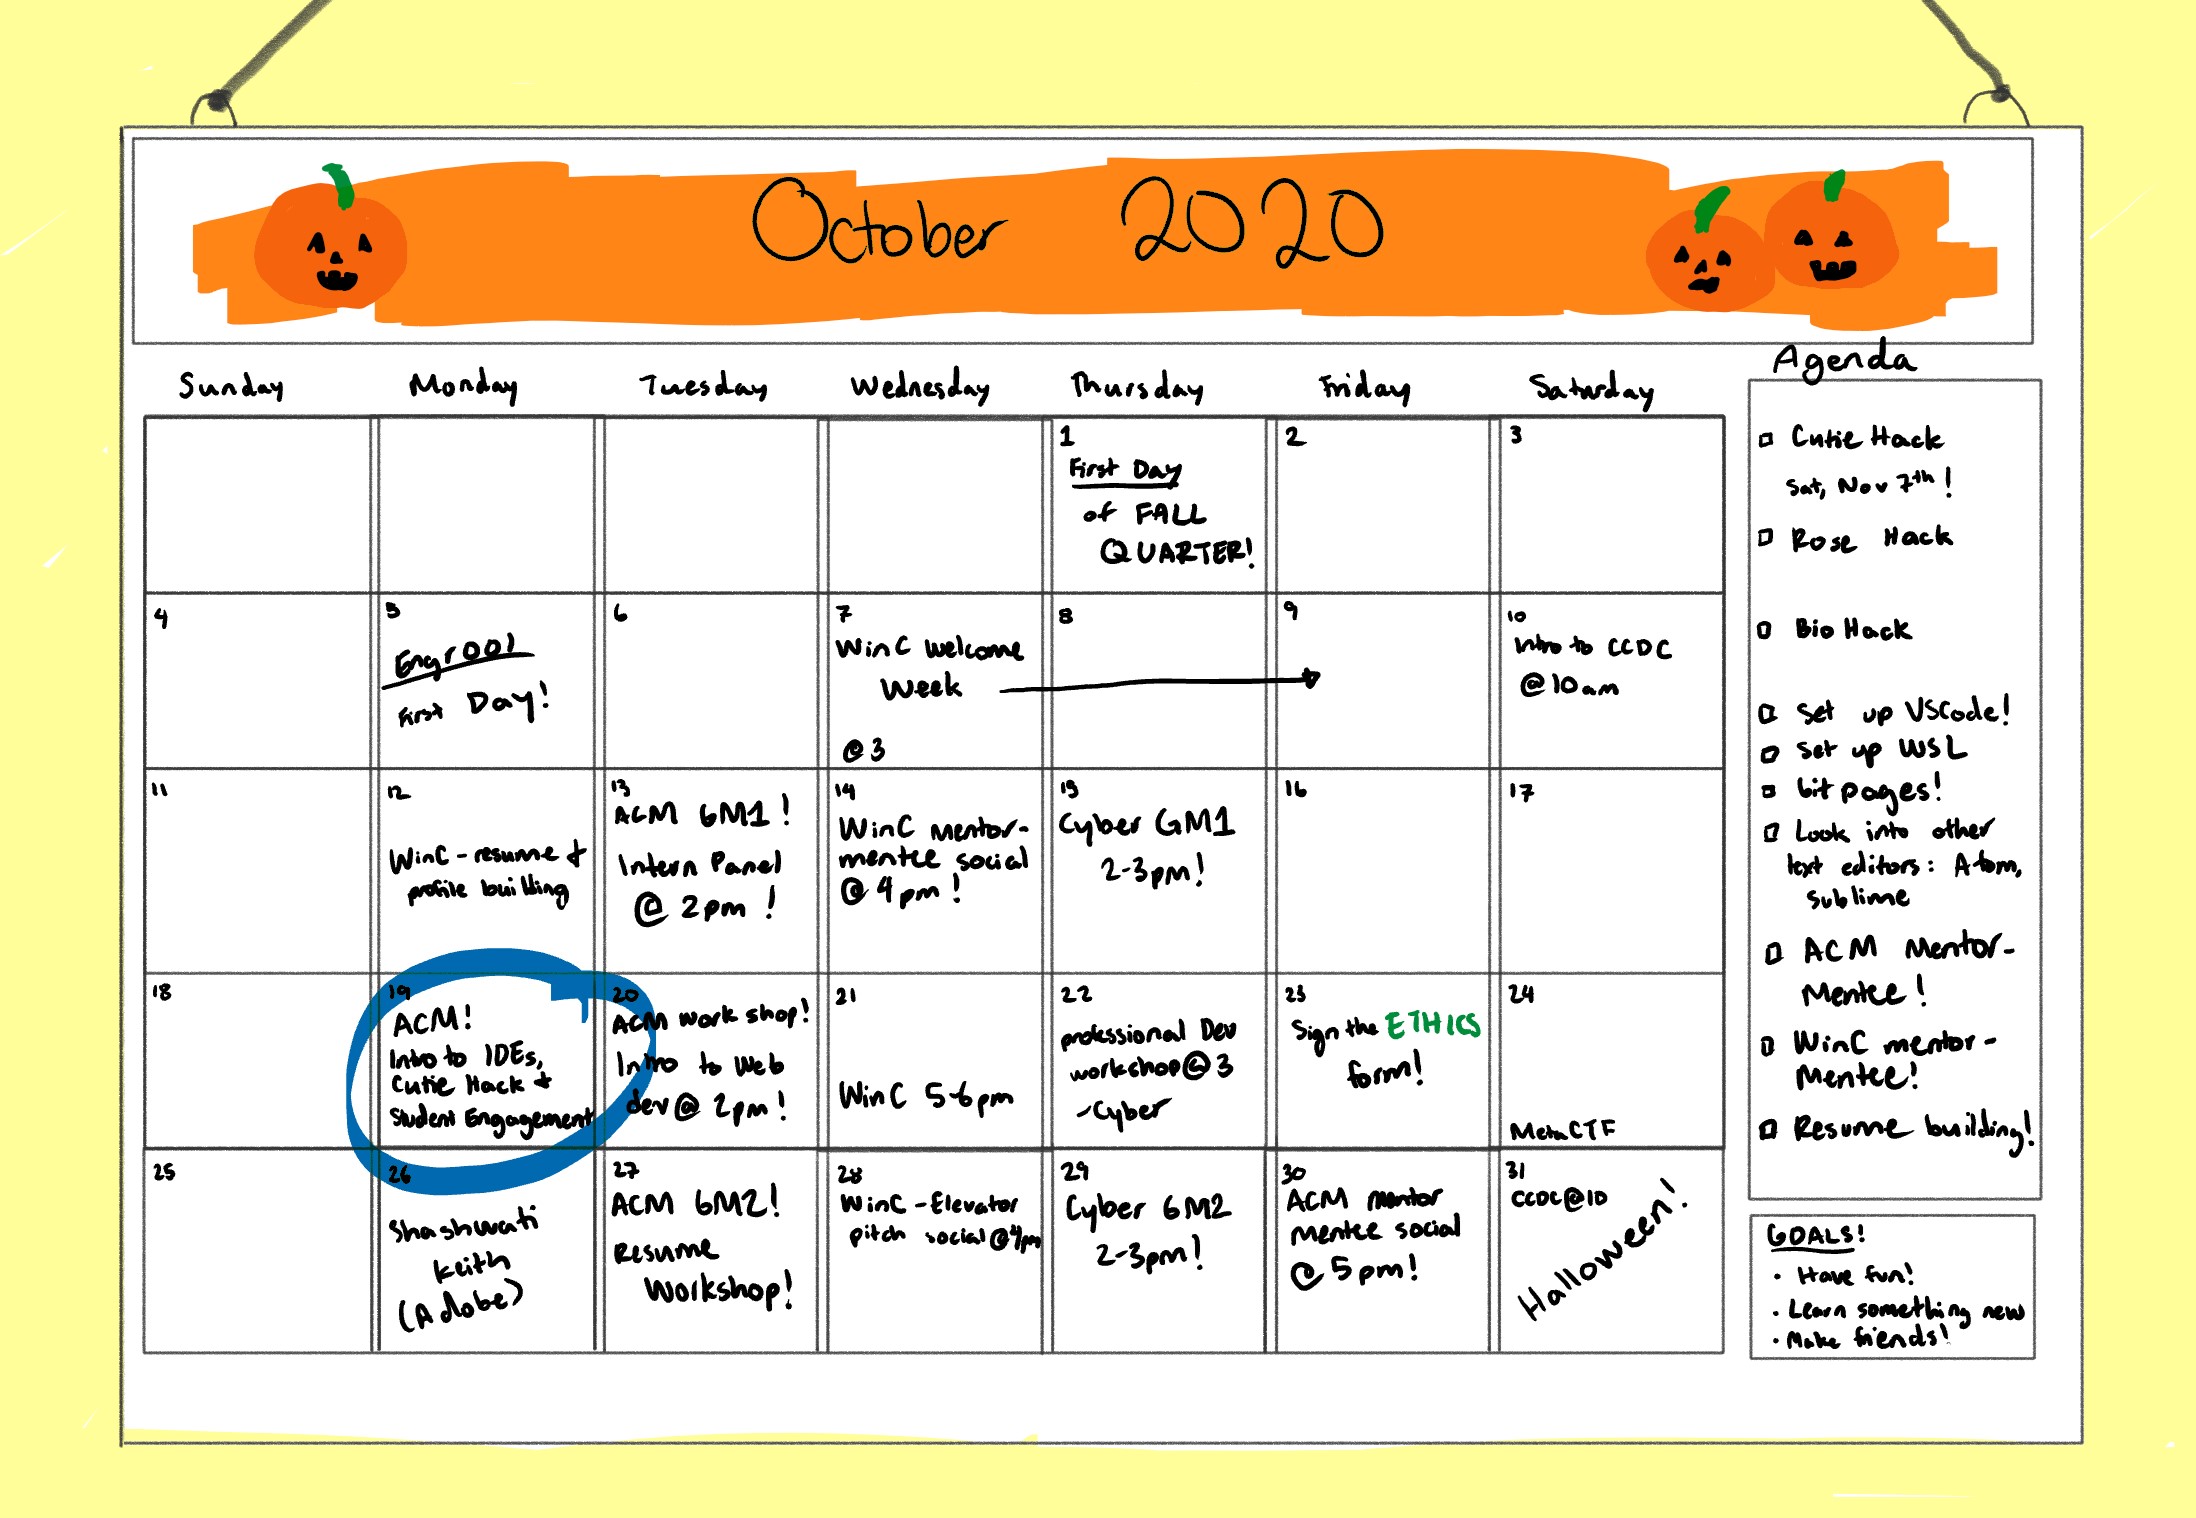 October 2020
Sunday Monday Tuesday Wednesday Thursday Friday Saturday
1
First Day
of FALL
QUARTER!
2
3
4
5
Engr001
First Day!
6
7
WinC Welcome
Week
@3
8
9
10
Intro to CCDC
@10am
11
12
WinC - resume &
profile building
13
ACM GM1!
Intern Panel
@ 2pm!
14
WinC mentor-
mentee social
@ 4pm!
15
Cyber GM1
2-3pm!
16
17
18
19
ACM!
Intro to IDEs,
Cutie Hack &
Student Engagement
20
ACM workshop!
Intro to Web
dev @ 2pm!
21
WinC 5-6pm
22
professional Dev
workshop@3
-Cyber
23
Sign the ETHICS
form!
24
MetaCTF
25
26
Shashwati
Keith
(Adobe)
27
ACM GM2!
Resume
Workshop!
28
WinC - Elevator
pitch social @4pm
29
Cyber GM2
2-3pm!
30
ACM mentor
mentee social
@ 5pm!
31
CCDC@10
Halloween!
Agenda
Cutie Hack
Sat, Nov 7th!
Rose Hack
Bio Hack
Set up VSCode!
Set up WSL
Git pages!
Look into other
text editors: Atom,
sublime
ACM Mentor-
Mentee!
WinC mentor-
Mentee!
Resume building!
GOALS!
• Have fun!
• Learn something new
• Make friends!